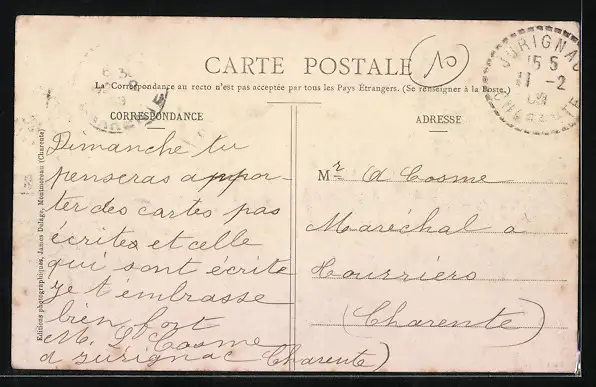 CARTE POSTALE
10
JURIGNAC
15 5
11 -2
CHARENTE
La Correspondance au recto n'est pas acceptée par tous les Pays Étrangers. (Se renseigner à la Poste.)
CORRESPONDANCE
ADRESSE
Dimanche tu
penseras appor-
ter des cartes pas
écrites et celle
qui sont écrite
je t'embrasse
bien fort
M. L. Cosme
à Jurignac Charente)
Mr A Cosme
Maréchal a
Tourriers
(Charente)
Editions photographiques, James Delage, Montmoreau (Charente)